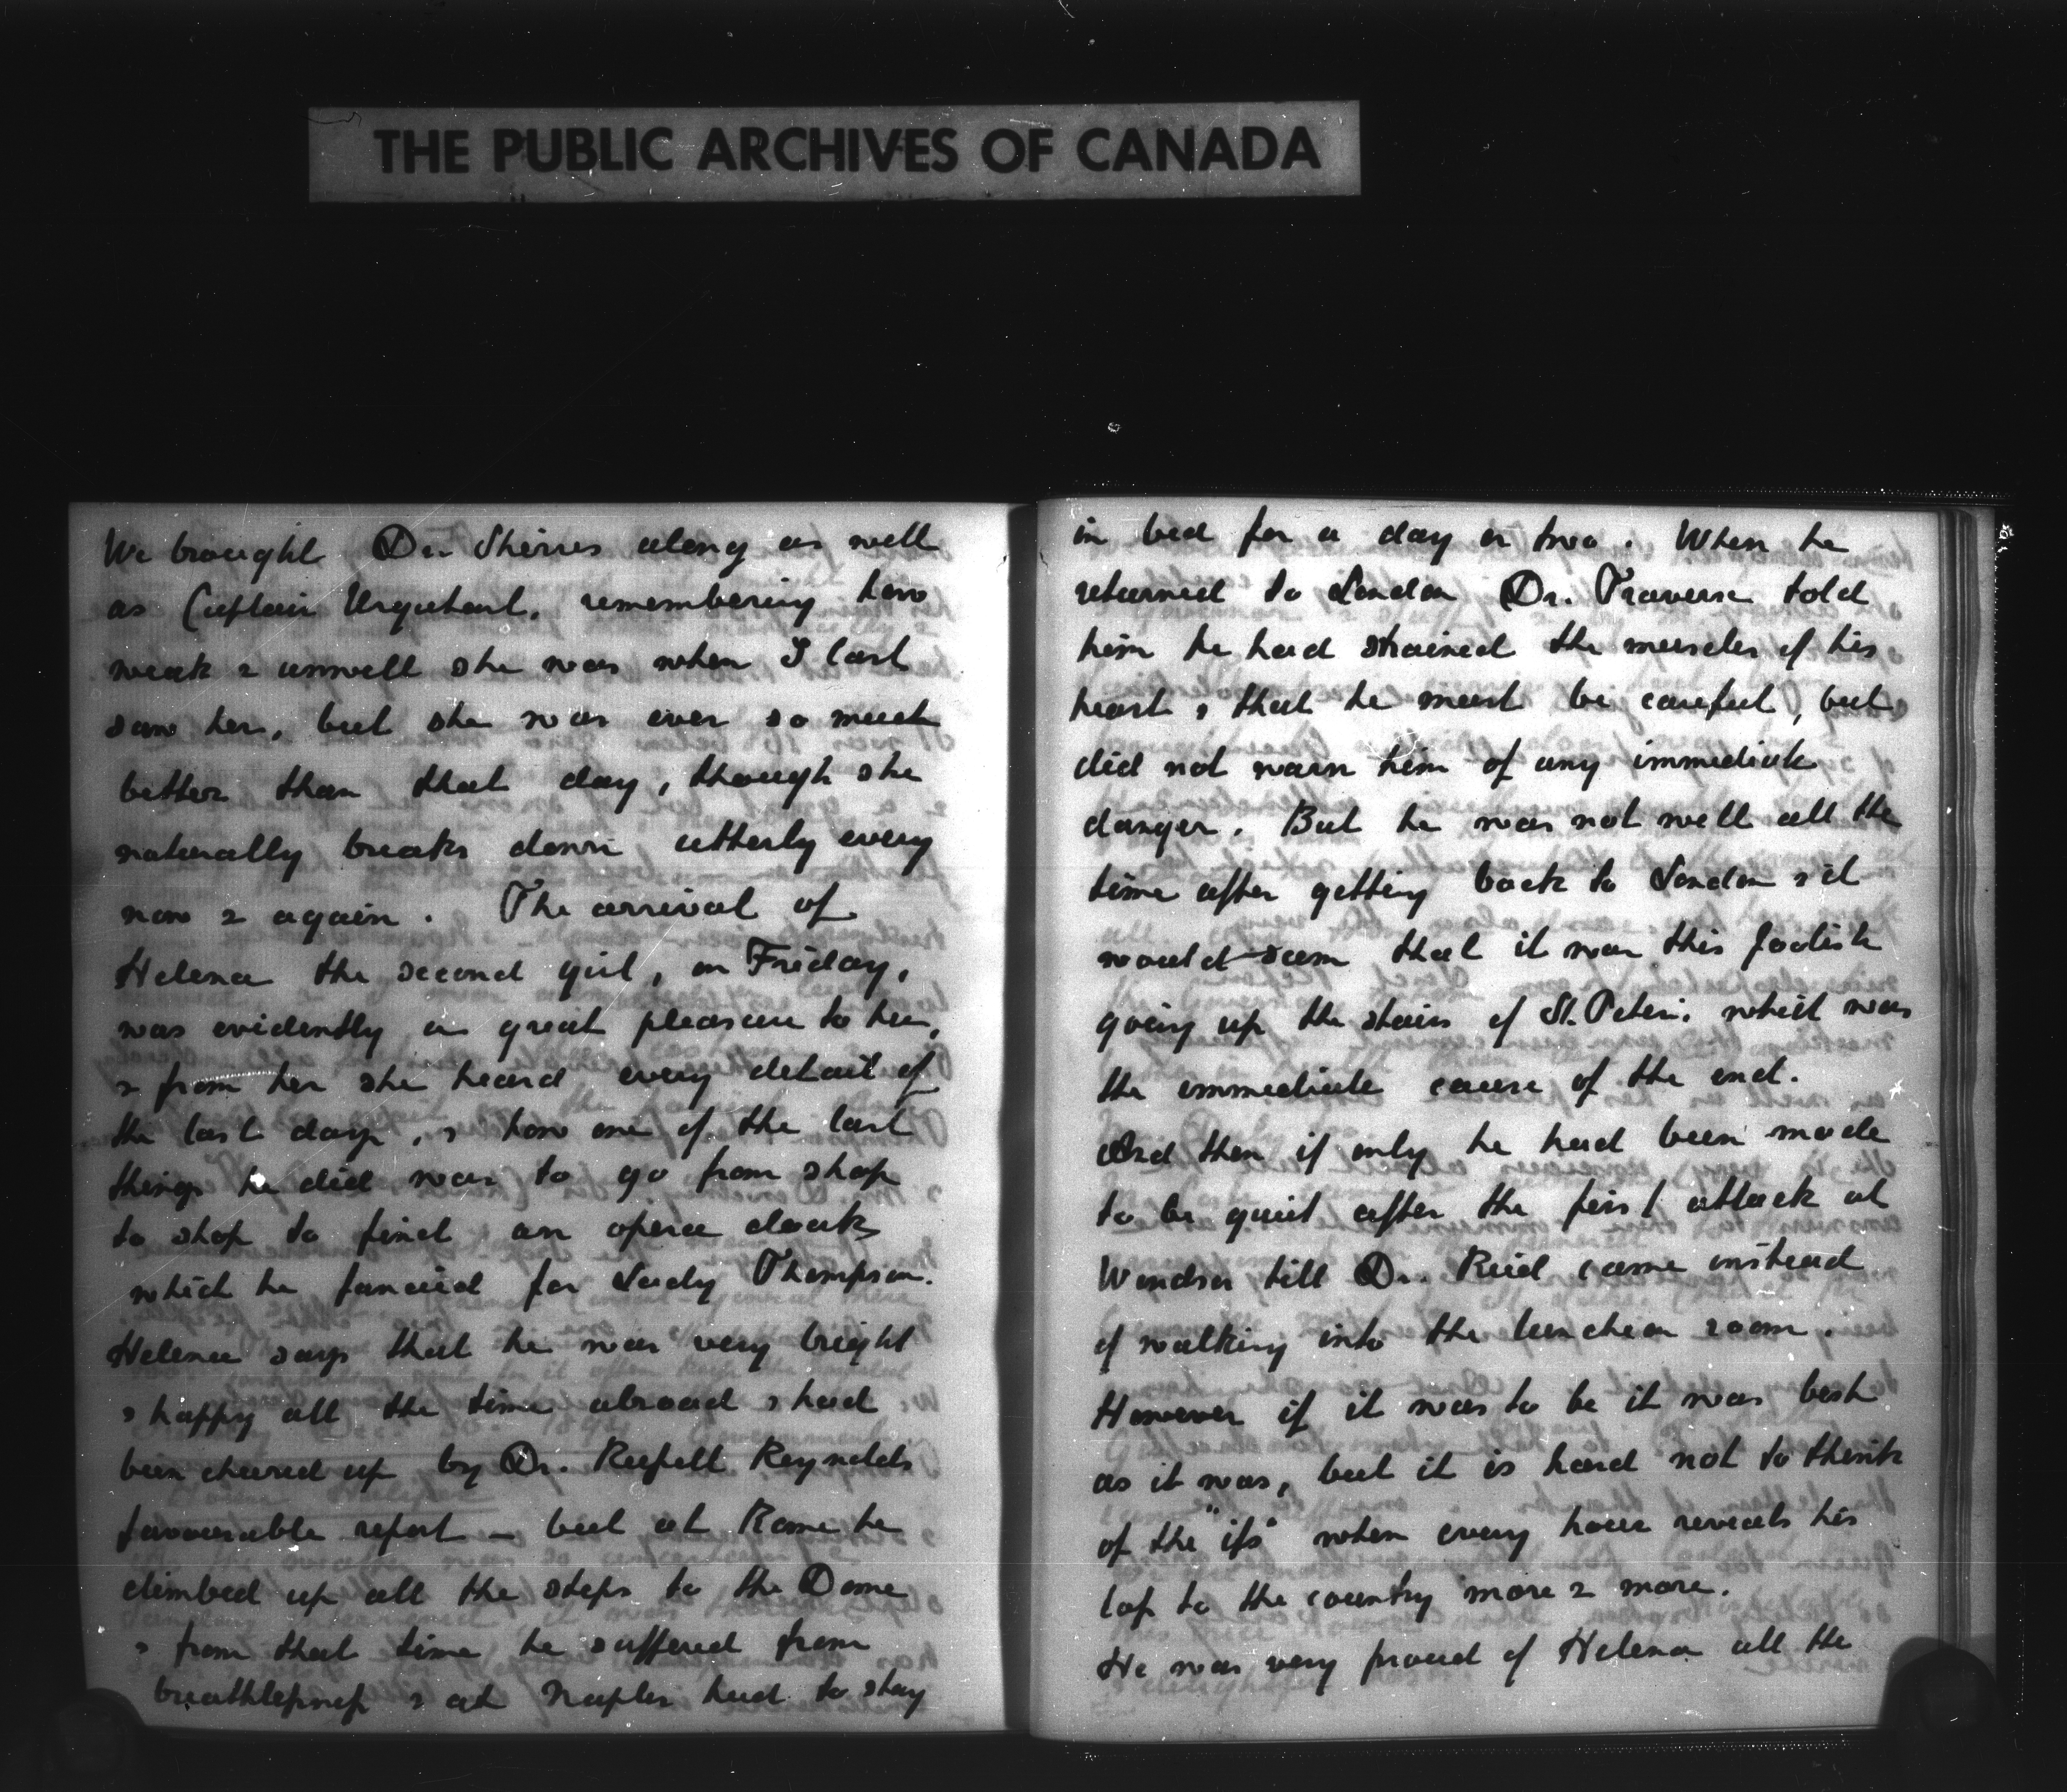 THE PUBLIC ARCHIVES OF CANADA
We brought Dr. Shirres along as well
as Captain Urquhart, remembering how
weak & unwell she was when I last
saw her, but she was ever so much
better than that day, though she
naturally breaks down utterly every
now & again. The arrival of
Helena the second girl, on Friday,
was evidently a great pleasure to her,
& from her she heard every detail of
the last days, & how one of the last
things he did was to go from shop
to shop to find an opera cloak
which he fancied for Lady Thompson.
Helena says that he was very bright
& happy all the time abroad & had
been cheered up by Dr. Russell Reynolds
favourable report – but at Rome he
climbed up all the steps to the Dome
& from that time he suffered from
breathlessness & at Naples had to stay
in bed for a day or two. When he
returned to London Dr. Travers told
him he had strained the muscles of his
heart & that he must be careful, but
did not warn him of any immediate
danger. But he was not well all the
time after getting back to London & it
would seem that it was this foolish
going up the stairs of St. Peters. which was
the immediate cause of the end.
And then if only he had been made
to be quiet after the first attack at
Windsor till Dr. Reid came instead
of walking into the luncheon room.
However if it was to be it was best
as it was, but it is hard not to think
of the "ifs" when every hour reveals his
loss to the country more & more.
He was very proud of Helena all the